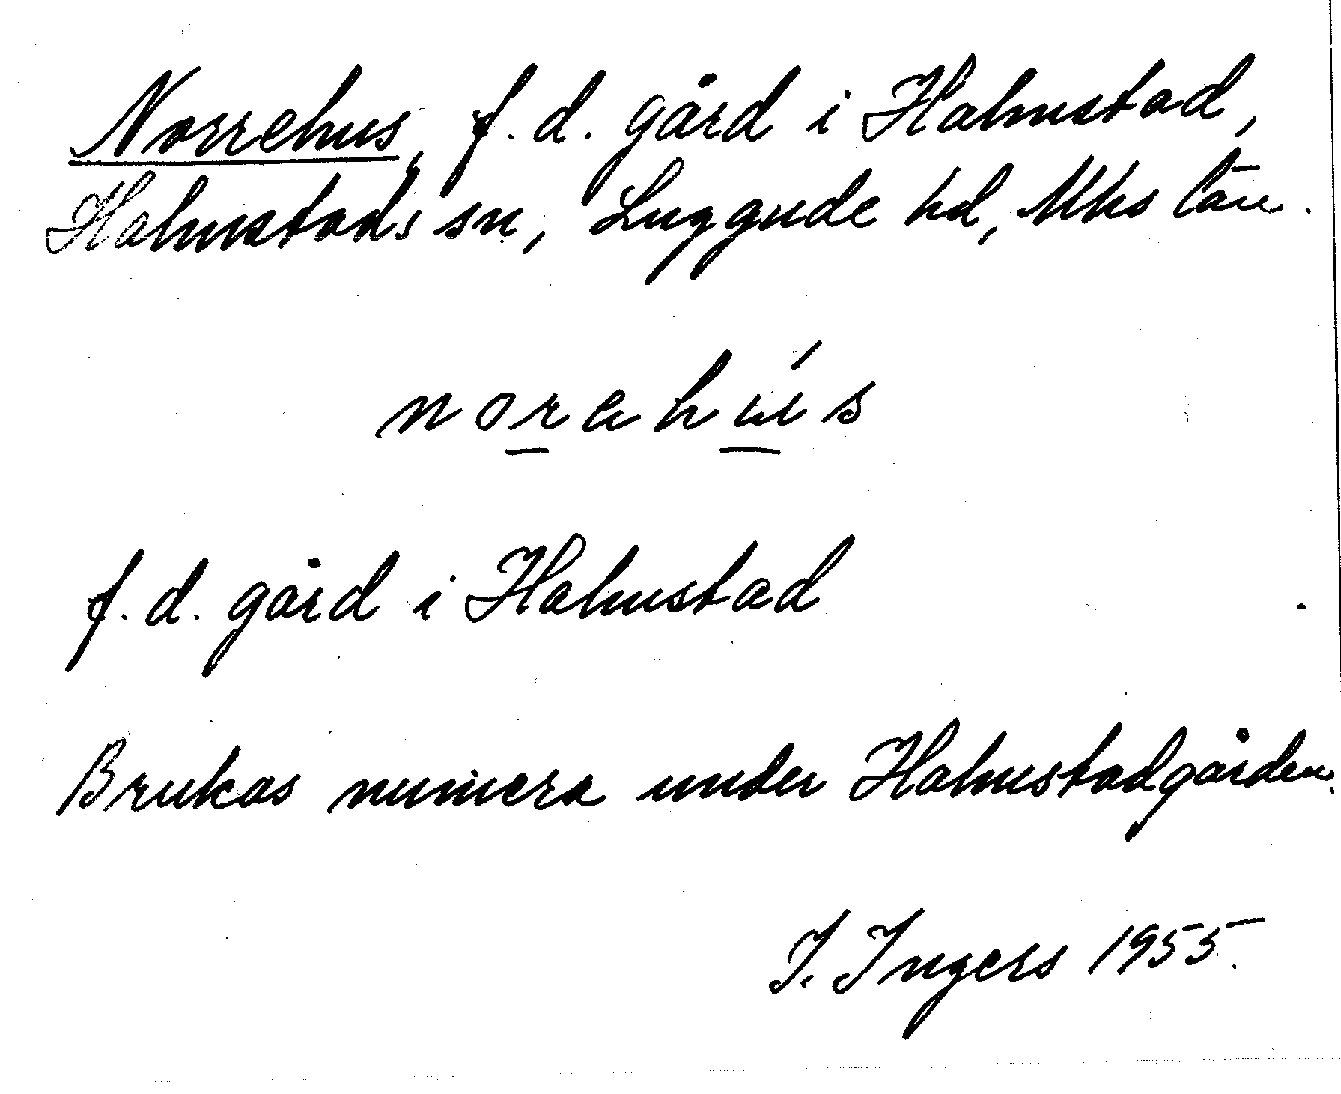 Norrehus, f.d. gård i Halmstad,
Halmstads sn, Luggude hd, Mhs län.
norahús
f.d. gård i Halmstad
Brukas numera under Halmstadgården.
I. Ingers 1955.